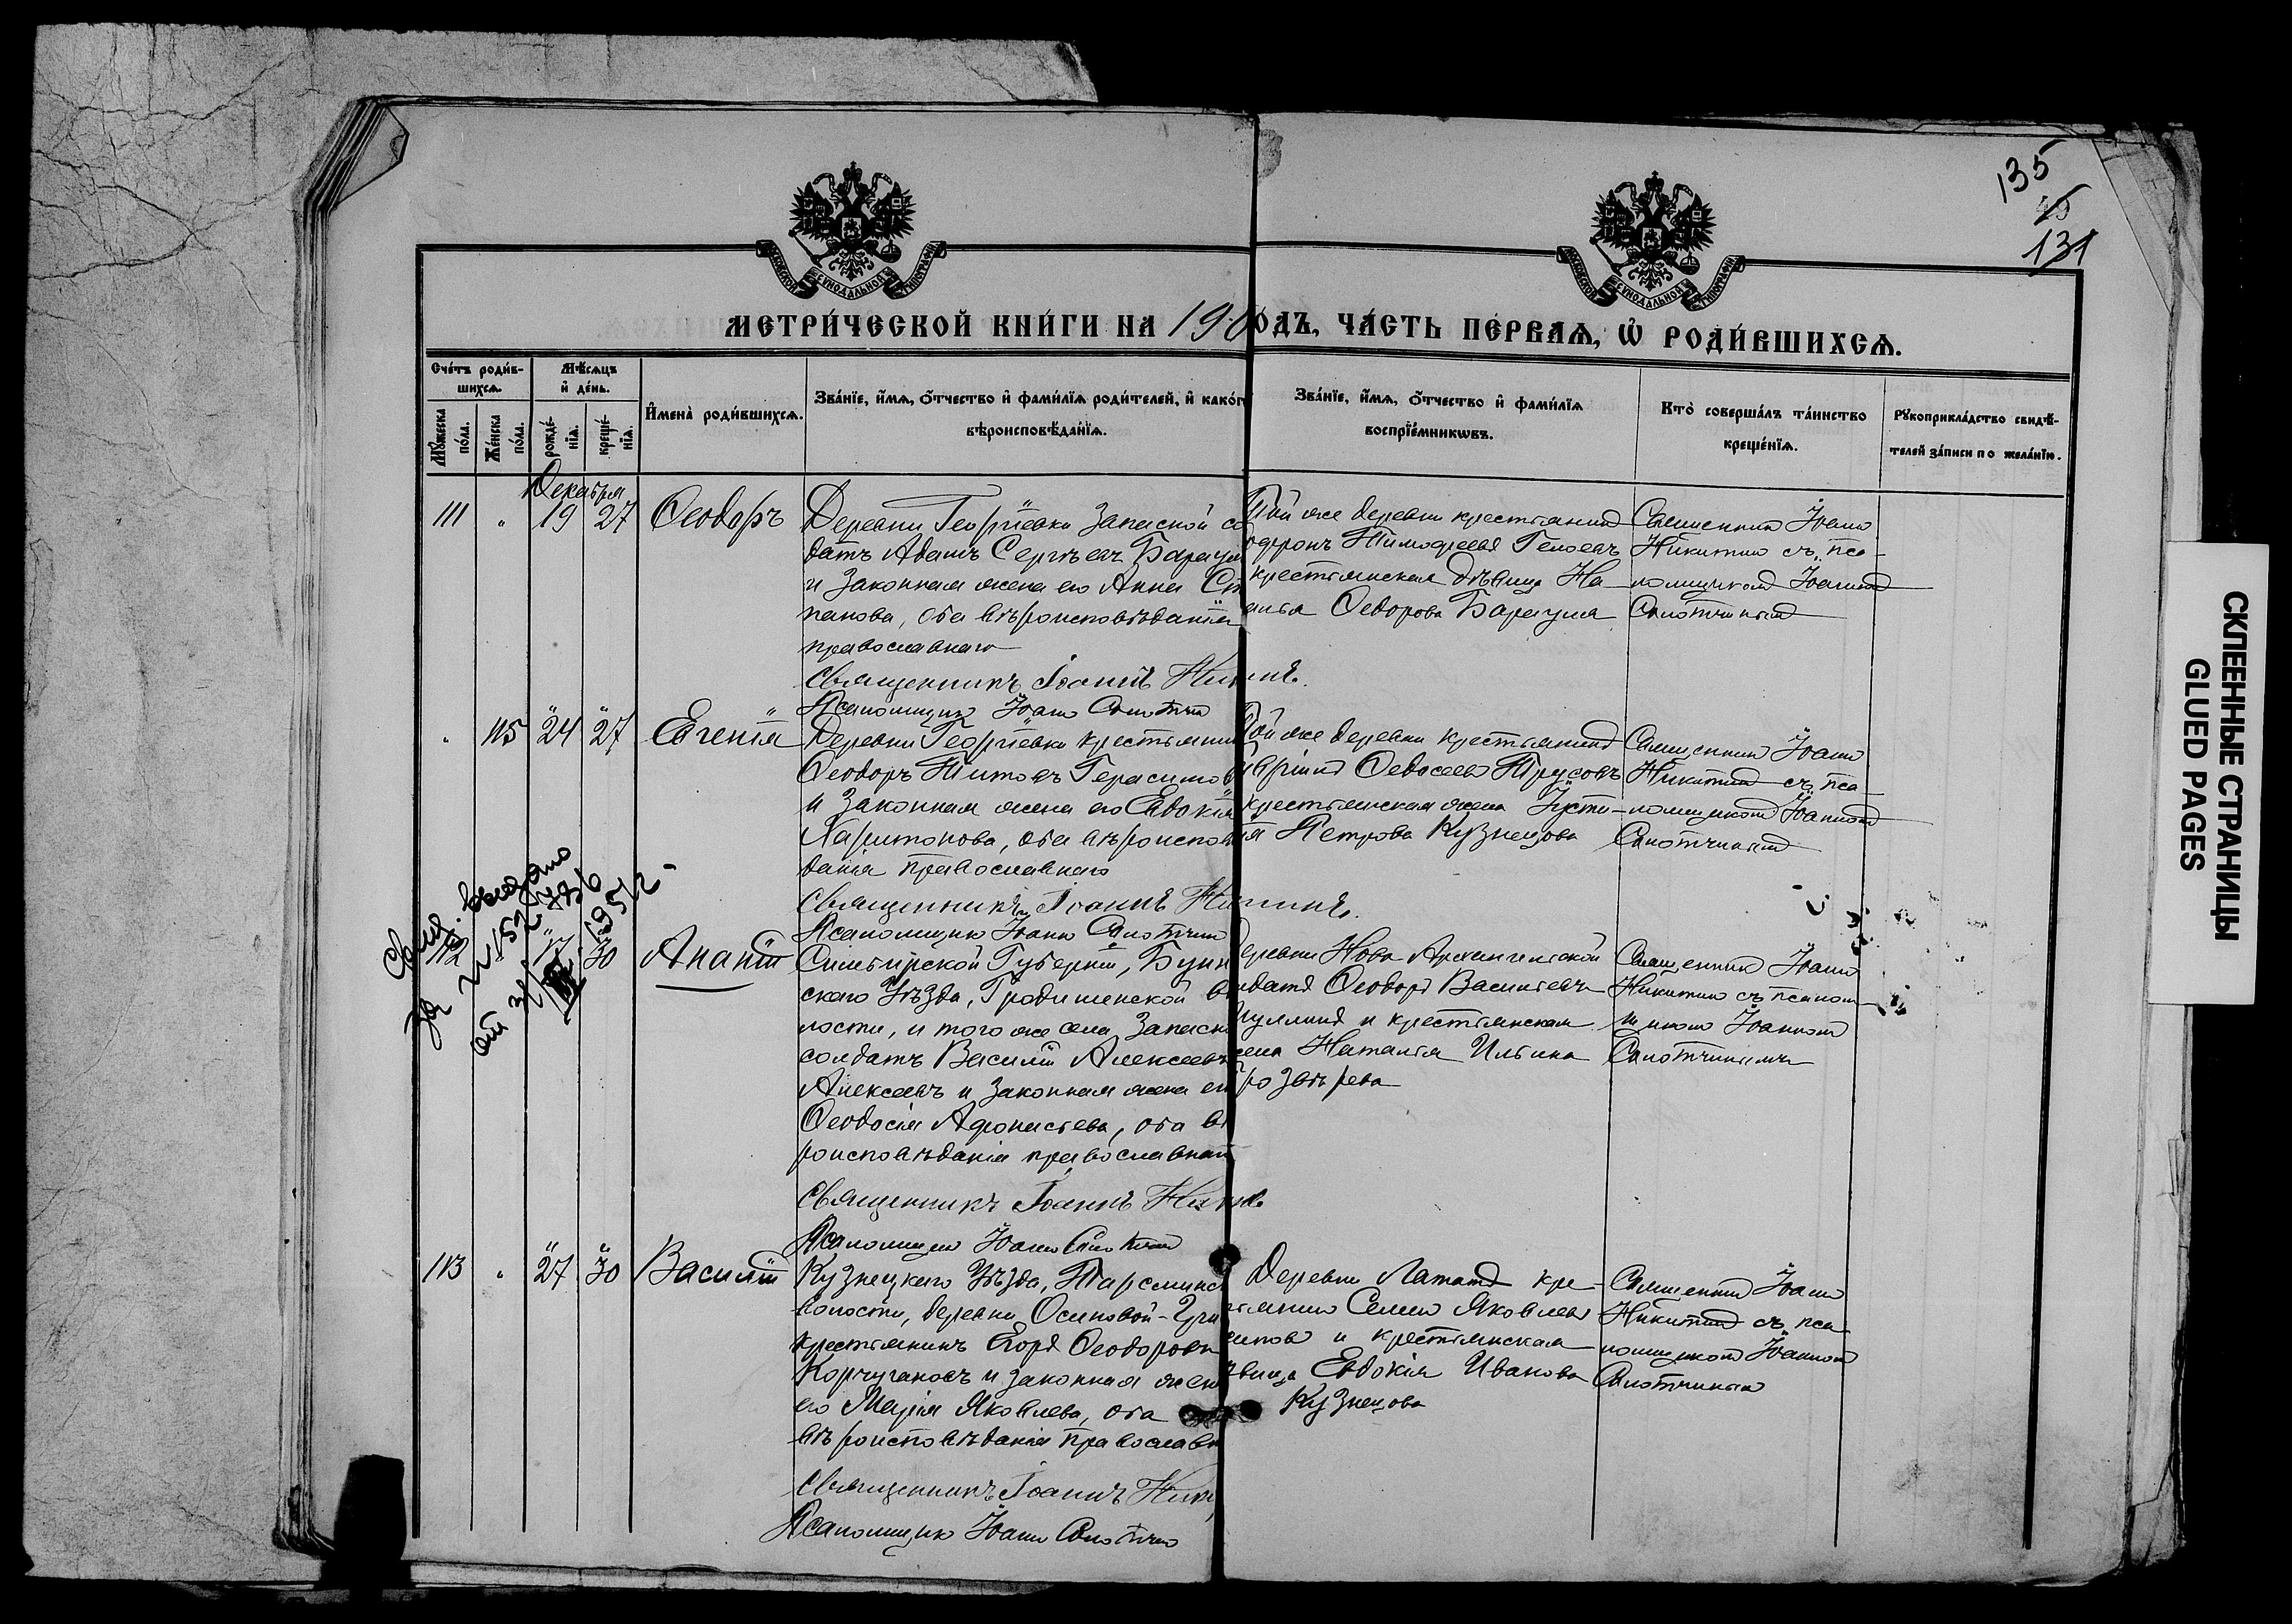 135
49
131
МОСКОВСКОЙ СѴНОДАЛЬНОЙ ТИПОГРАФІИ
МОСКОВСКОЙ СѴНОДАЛЬНОЙ ТИПОГРАФІИ
МЕТРИ́ЧЕСКОЙ КНИ́ГИ НА 190
ОДЪ, ЧА́СТЬ ПЕ́РВАѦ, Ѡ҆ РОДИ́ВШИХСѦ.
Сче́тъ роди́в-
шихсѧ.
Мꙋ́жеска по́ла.
Же́нска по́ла.
Мѣ́сѧцъ
и҆ де́нь.
рожде́-
нїѧ.
креще́-
нїѧ.
И҆мена̀ роди́вшихсѧ.
Зва́нїе, и҆́мѧ, ѻ҆́тчество и҆ фами́лїѧ роди́телей, и҆ како́г
вѣроисповѣ́данїѧ.
Зва́нїе, и҆́мѧ, ѻ҆́тчество и҆ фами́лїѧ
воспрїе́мникѡвъ.
Кто̀ соверша́лъ та́инство
креще́нїѧ.
Рꙋкоприкла́дство свидѣ́-
телей за́писи по жела́нїю.
Декабря
111 " 19 27 Ѳеодоръ
Деревни Георгіевки запасной со
датъ Адамъ Сергѣевъ Барсу
и законная жена его Анна Ст
панова, оба вѣроисповѣданія
православнаго
Священникъ Іоаннъ Ники
Псаломщикъ Іоаннъ
Той же деревни крестьянинъ
Тимофеевъ
крестьянская дѣвица На
Ѳедорова
Священникъ Іоаннъ
Никитинъ съ пса-
ломщикомъ Іоанномъ
" 115 24 27 Евгенія
Деревни Георгіевки крестьянин
Ѳеодоръ Титовъ Герасимов
и законная жена его Евдокія
Харитонова, оба вѣроиспов
данія православнаго
Священникъ Іоаннъ Ни
Псаломщикъ Іоаннъ
ой же деревни крестьянинъ
Ѳедосеевъ Трусовъ
крестьянская жена Јусти-
ія Петрова Кузнецова
Священникъ Іоаннъ
Никитинъ съ пса-
ломщикомъ Іоанномъ
выдано
112 " 17 30 Ананій
Симбирской Губерніи, Буин
скаго Уѣзда, Городищенской во
лости, и того же села, запасн
солдатъ Василій Алексеевъ
Алексеевъ и законная жена ег
Ѳеодосія Афонасьева, оба вѣ
роисповѣданія православнаго
Священникъ Іоаннъ Ник
Псаломщикъ Іоаннъ
еревни Ново Архангельской
лдатъ Ѳеодоръ Васильевъ
и крестьянская
жена Наталія Ильина
Священникъ Іоаннъ
Никитинъ съ псалом
щикомъ Іоанномъ
113 " 27 30 Василій
Кузнецкаго Уѣзда, Тарсминск
волости, деревни Осиновой-Гри
крестьянинъ Егоръ Ѳеодоровъ
Корчугановъ и законная жена
его Марія Яковлева, оба
вѣроисповѣданія православн
Священникъ Іоаннъ Ники
Псаломщикъ Іоаннъ
Деревни кре-
стьянинъ Семенъ Яковлевъ
и крестьянская
ѣвица Евдокія Иванова
Кузнецова
Священникъ Іоаннъ
Никитинъ съ пса-
ломщикомъ Іоанномъ
СКЛЕЕННЫЕ СТРАНИЦЫ
GLUED PAGES